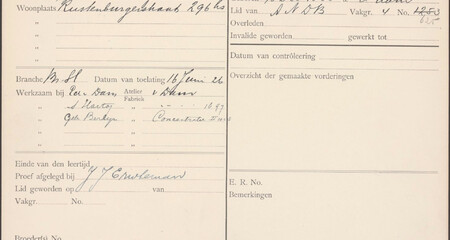 Woonplaats Rustenburgerstraat 296 hs
"
"
"
Branche Br. Sl. Datum van toelating 16 Juni 26
Werkzaam bij van Dam Atelier Fabriek v Dam
" S Hartog " 1857
" Gebr
"
"
Einde van den leertijd
Proef afgelegd bij J J
Lid geworden op van
Vakgr. No.
Broederfri No.
Lid van A N D B Vakgr. 4 No. 1253
Overleden
Invalide geworden gewerkt tot
Datum van contrôleering
Overzicht der gemaakte vorderingen
E. R. No.
Bemerkingen